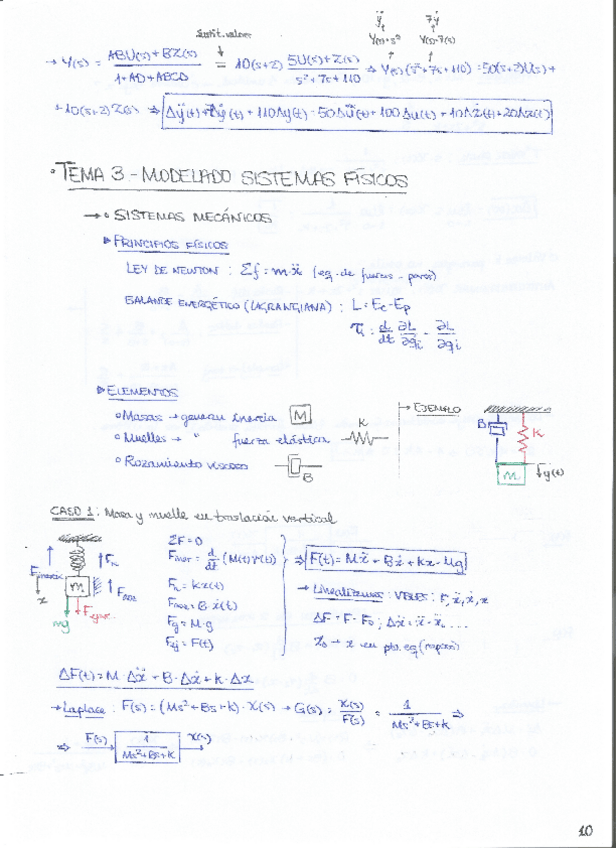 Sustit. valores ÿ 7ẏ
Y(s)·s² Y(s)·7(s)
→ Y(s) = ABU(s)+BZ(s) / 1+AD+ABCD = 10(s+2) 5U(s)+Z(s) / s²+7s+110 ⇒ Y(s)(s²+7s+110) = 50(s+2)U(s)+
+10(s+2)Z(s) ⇒ Δÿ(t)+7Δẏ(t)+110Δy(t) = 50Δu̇(t)+100Δu(t)+10Δż(t)+20Δz(t)
• TEMA 3 - MODELADO SISTEMAS FÍSICOS
→ • SISTEMAS MECÁNICOS
▶ PRINCIPIOS FÍSICOS
LEY DE NEWTON : Σf = m·ẍ (eq. de fuerzas - pares)
BALANCE ENERGÉTICO (LAGRANGIANA) : L = Ec - Ep
τi = d/dt ∂L/∂q̇i - ∂L/∂qi
▶ ELEMENTOS
o Masas → generan inercia M
o Muelles → " fuerza elástica K
o Rozamiento viscoso B
→ EJEMPLO
B K
M y(t)
CASO 1 : Masa y muelle en traslación vertical
ΣF = 0
Finer = d/dt (M(t)v(t))
Fk = Kx(t)
Froz = B·ẋ(t)
Fg = M·g
Fej = F(t)
⇒ F(t) = Mẍ + Bẋ + Kx - Mg
→ Linealizamos : VBLES : F, ẍ, ẋ, x
ΔF = F - F0 ; Δẍ = ẍ - ẍ0 ...
x0 → x en pto. eq (reposo)
Finercia Fk
x m Froz
mg
ΔF(t) = M·Δẍ + B·Δẋ + K·Δx
→ Laplace : F(s) = (Ms²+Bs+K)·X(s) → G(s) = X(s)/F(s) = 1/Ms²+Bs+K ⇒
⇒ F(s) 1/Ms²+Bs+K X(s)
10